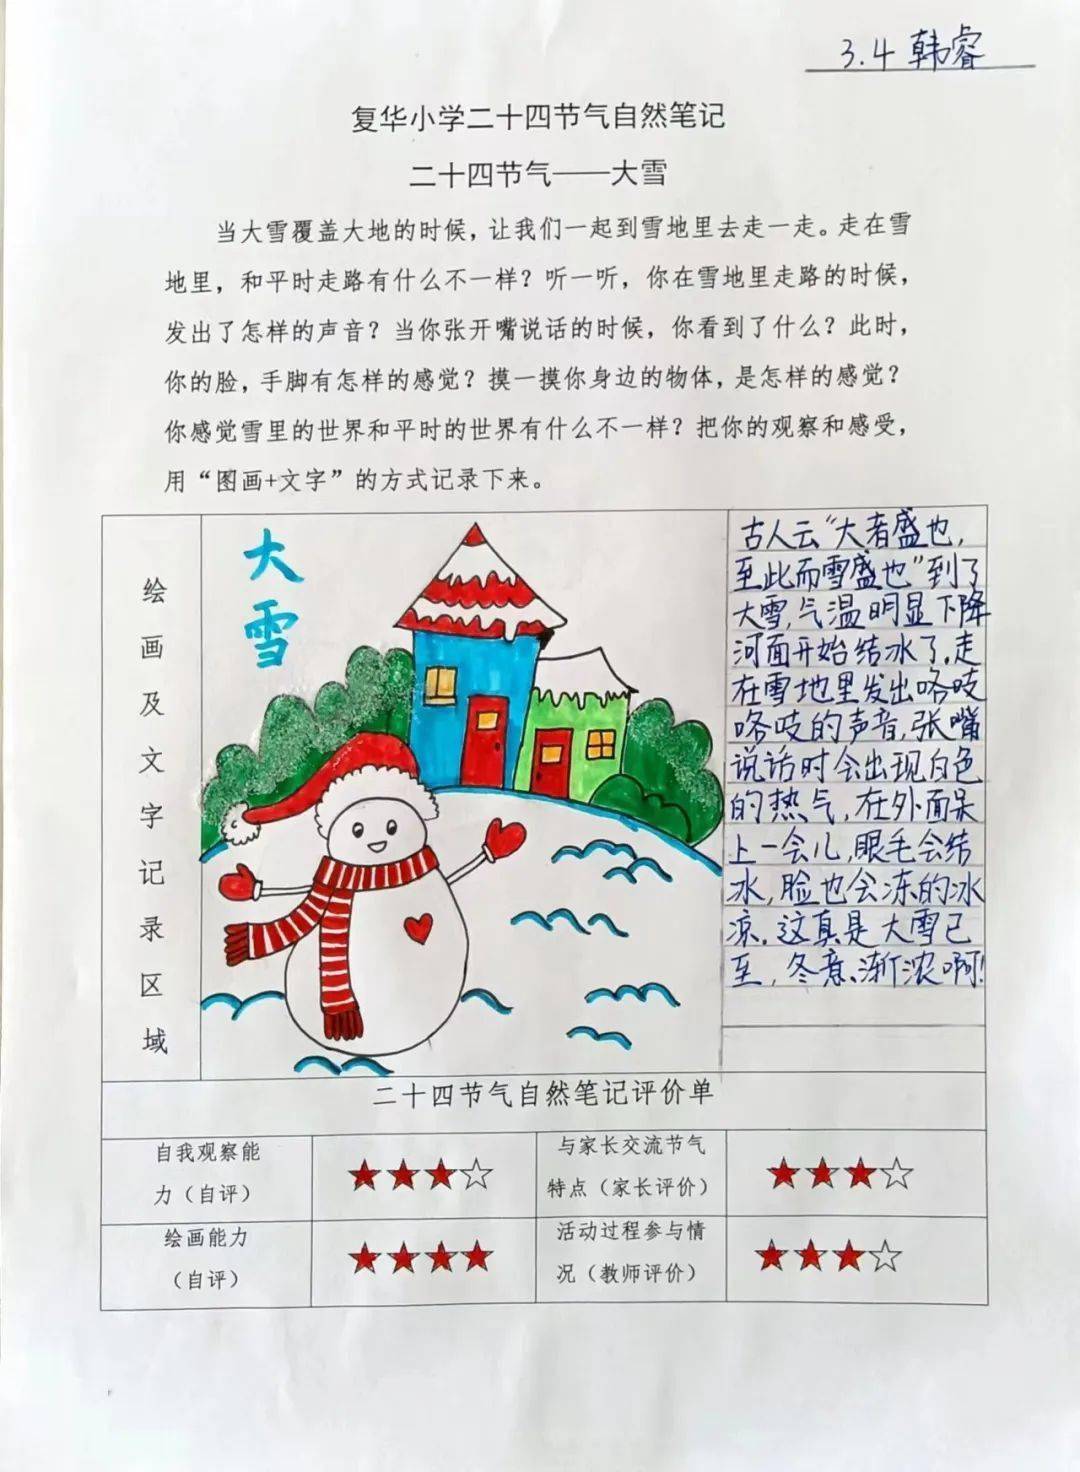 3.4 韩睿
复华小学二十四节气自然笔记
二十四节气——大雪
当大雪覆盖大地的时候，让我们一起到雪地里去走一走。走在雪
地里，和平时走路有什么不一样？听一听，你在雪地里走路的时候，
发出了怎样的声音？当你张开嘴说话的时候，你看到了什么？此时，
你的脸，手脚有怎样的感觉？摸一摸你身边的物体，是怎样的感觉？
你感觉雪里的世界和平时的世界有什么不一样？把你的观察和感受，
用“图画+文字”的方式记录下来。
绘画及文字记录区域
大雪
古人云“大者盛也，
至此而雪盛也”到了
大雪，气温明显下降
河面开始结冰了。走
在雪地里发出咯吱
咯吱的声音，张嘴
说话时会出现白色
的热气，在外面呆
上一会儿，眼毛会结
冰，脸也会冻的冰
凉。这真是大雪已
至，冬意渐浓啊！
二十四节气自然笔记评价单
自我观察能
力（自评）
与家长交流节气
特点（家长评价）
绘画能力
（自评）
活动过程参与情
况（教师评价）